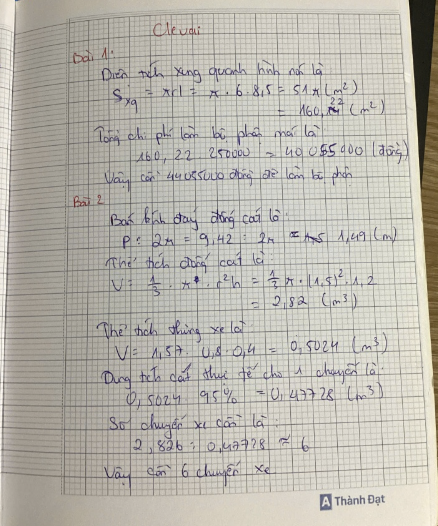 Bài 1:
Diện tích xung quanh hình nón là
Sxq = πrl = π . 6 . 8,5 = 51π (m²)
= 160,22 (m²)
Tổng chi phí làm bộ phận mái là
160,22 . 250000 = 40055000 (đồng)
Vậy cần 44055000 đồng để làm bộ phận
Bài 2
Bán kính đáy đống cát là:
P : 2π = 9,42 : 2π ≈ 1,49 (m)
Thể tích đống cát là:
V = 1/3 . π . r²h = 1/3 π . (1,5)² . 1,2
= 2,82 (m³)
Thể tích thùng xe là:
V = 1,57 . 0,8 . 0,4 = 0,5024 (m³)
Dung tích cát thực tế cho 1 chuyến là:
0,5024 . 95% = 0,47728 (m³)
Số chuyến xe cần là:
2,826 : 0,47728 ≈ 6
Vậy cần 6 chuyến xe
A Thành Đạt